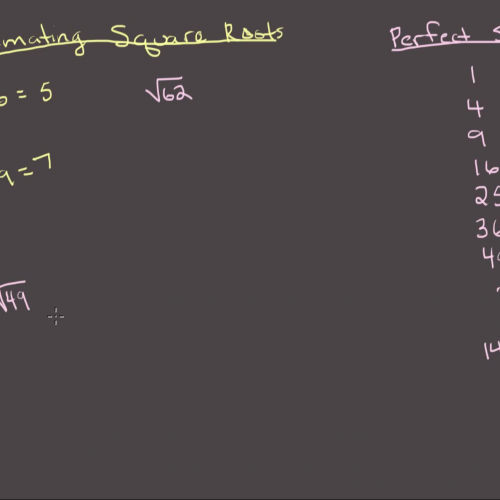 mating Square Roots
= 5
√62
9 = 7
√49
Perfect S
1
4
9
16
25
36
49
14